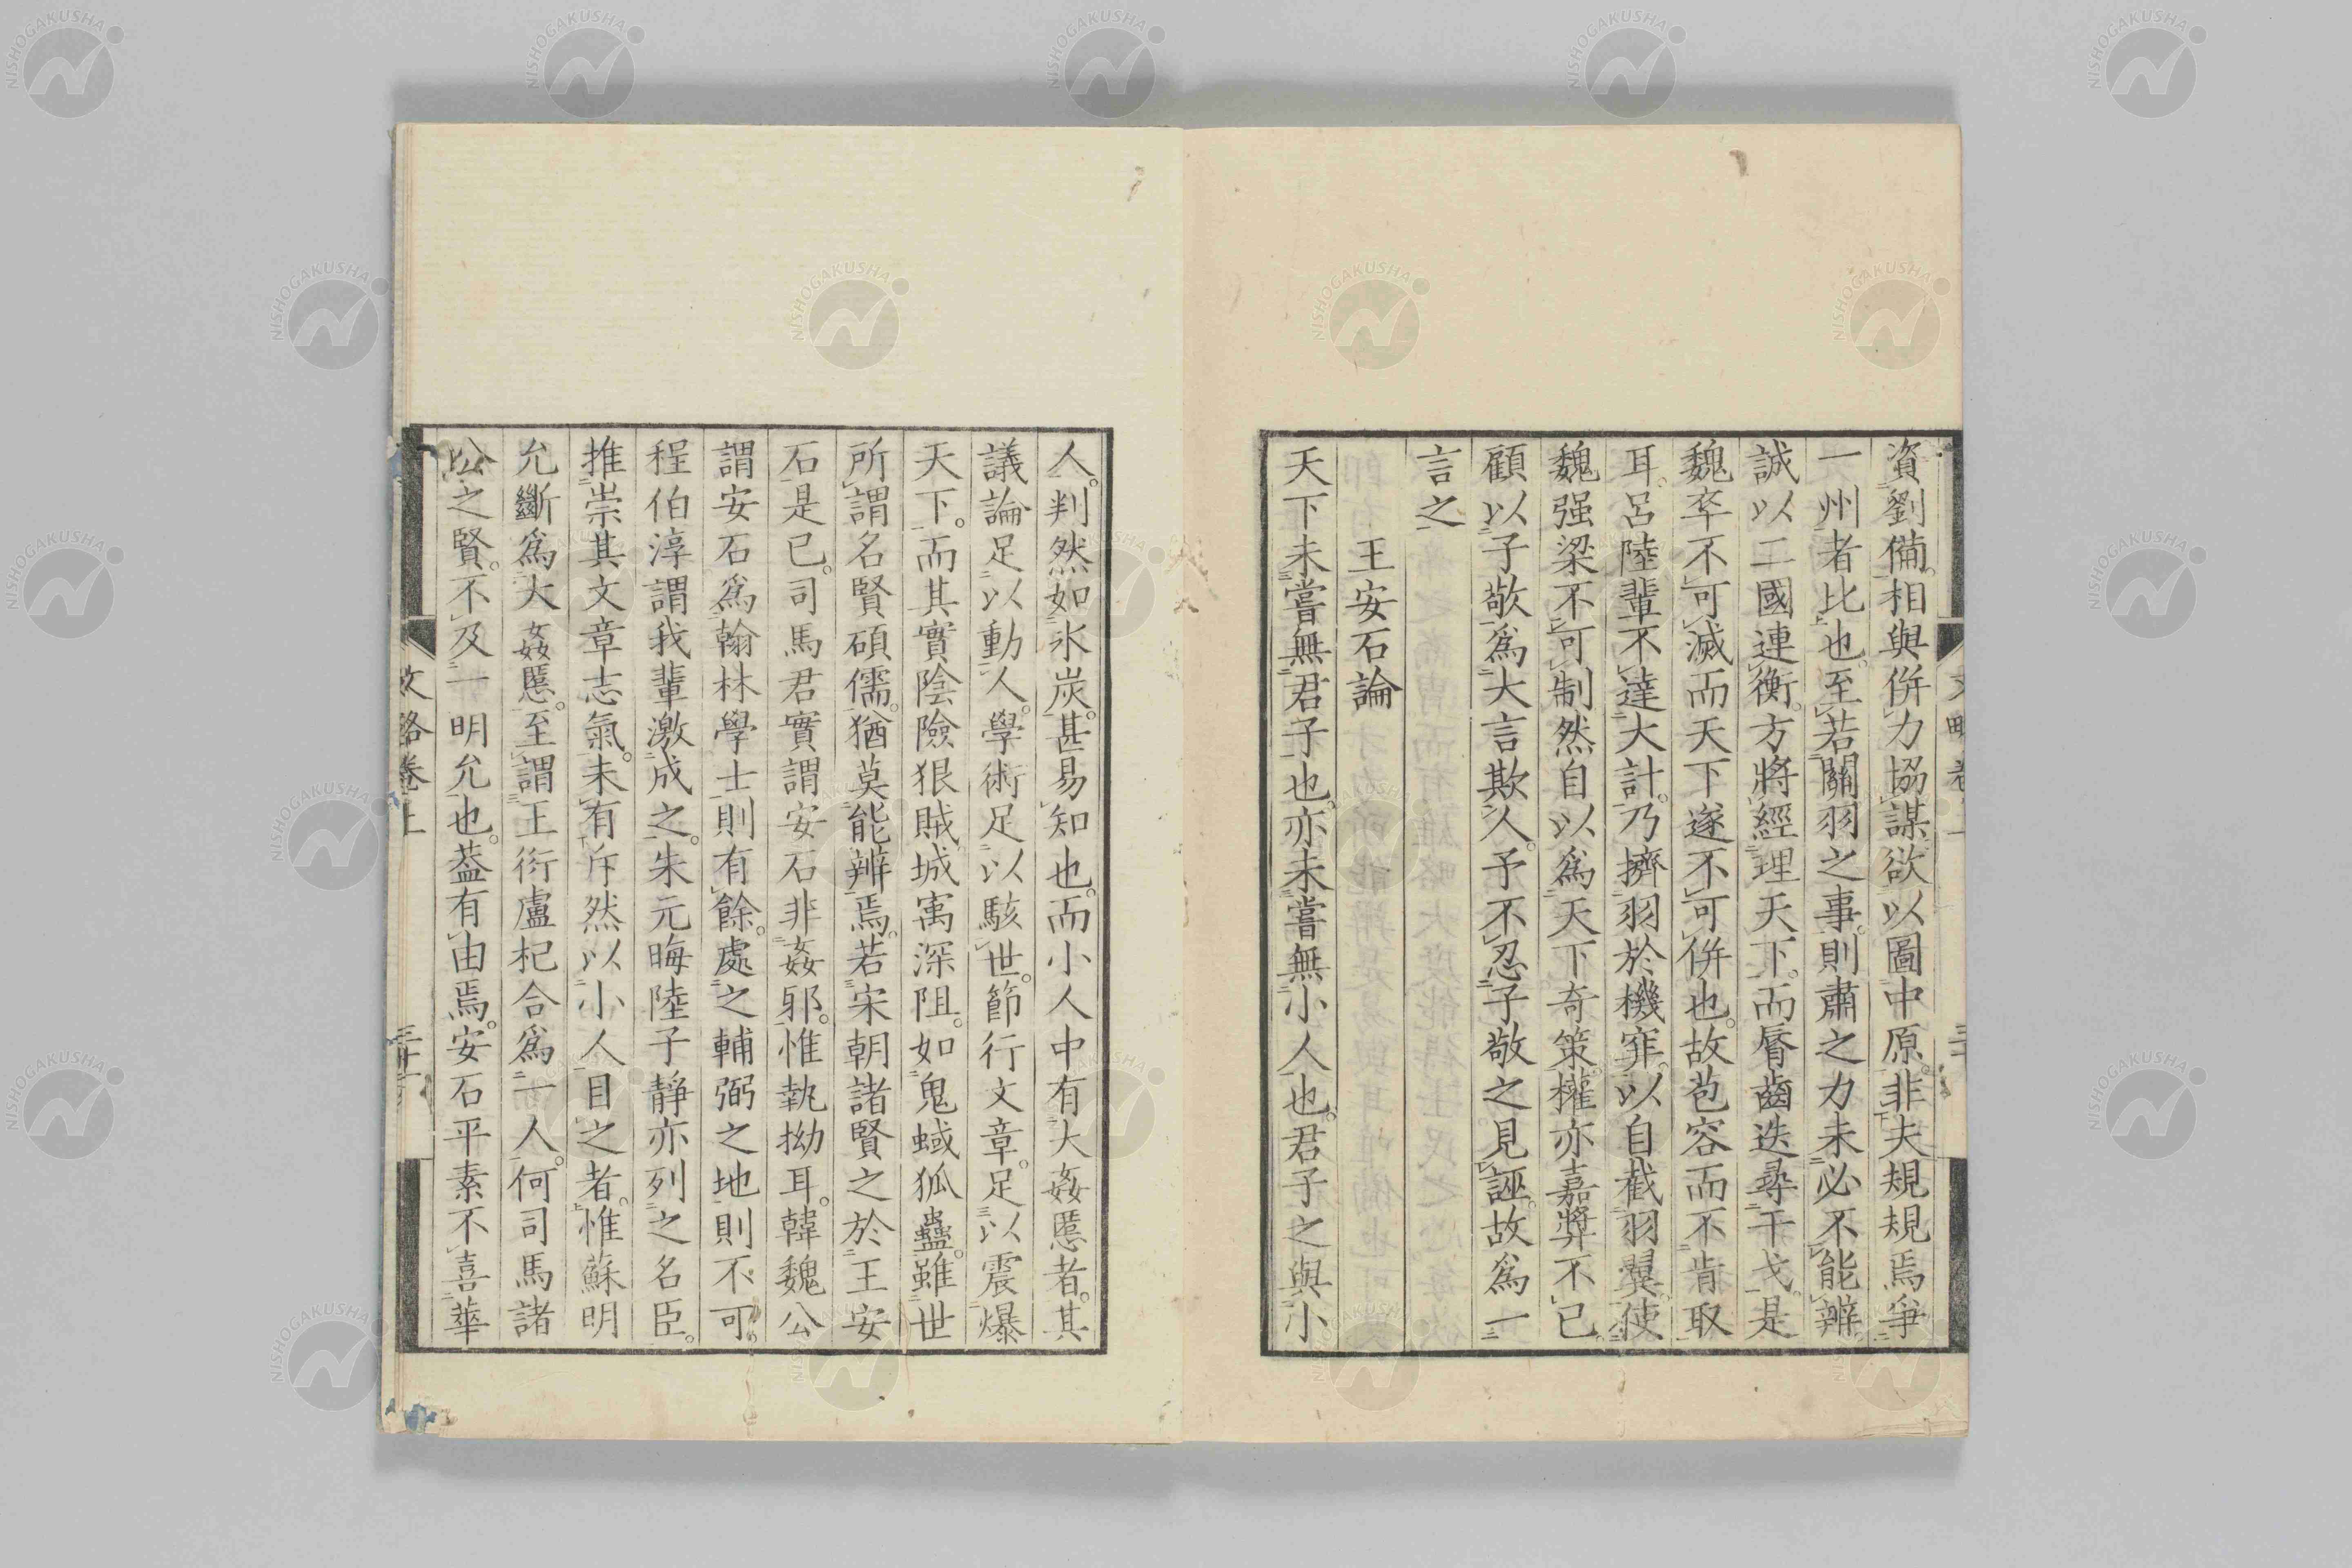 資劉備。相與併力協謀。欲以圖中原。非夫規規焉爭
一州者比也。至若關羽之事。則肅之力未必不能辨
誠以二國連衡。方將經理天下。而脣齒迭尋干戈。是
魏卒不可滅而天下遂不可併也。故苞容而不肯取
耳。呂陸輩不達大計。乃擠羽於機穽。以自截羽翼。使
魏强梁不可制。然自以爲天下奇策。權亦嘉奬不已。
顧以子敬爲大言欺人。予不忍子敬之見誣。故爲一
言之
王安石論
天下未嘗無君子也。亦未嘗無小人也。君子之與小
人。判然如氷炭。甚易知也。而小人中有大姦慝者。其
議論足以動人。學術足以駭世。節行文章。足以震爆
天下。而其實陰險狠賊。城寓深阻。如鬼蜮狐蠱。雖世
所謂名賢碩儒。猶莫能辨焉。若宋朝諸賢之於王安
石是已。司馬君實謂安石非姦邪。惟執拗耳。韓魏公
謂安石爲翰林學士則有餘。處之輔弼之地則不可。
程伯淳謂我輩激成之。朱元晦陸子靜亦列之名臣。
推崇其文章志氣。未有斥然以小人目之者。惟蘇明
允斷爲大姦慝。至謂王衍盧杞合爲一人。何司馬諸
公之賢。不及一明允也。葢有由焉。安石平素不喜華
文略卷上